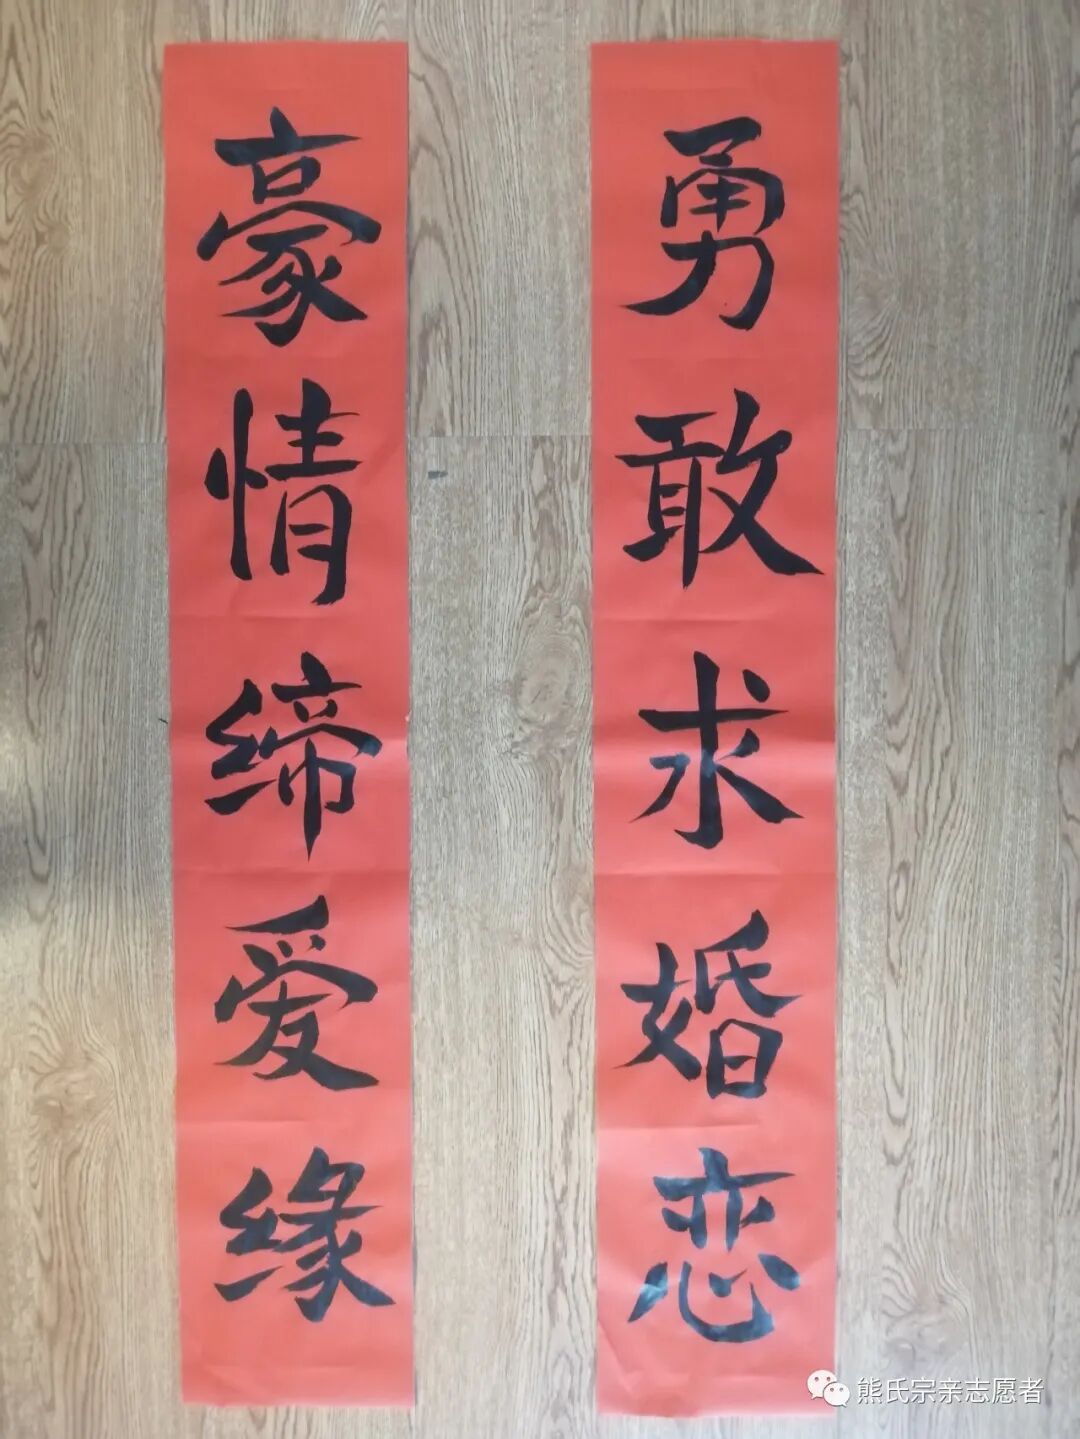 勇敢求婚恋
豪情缔爱缘
熊氏宗亲志愿者